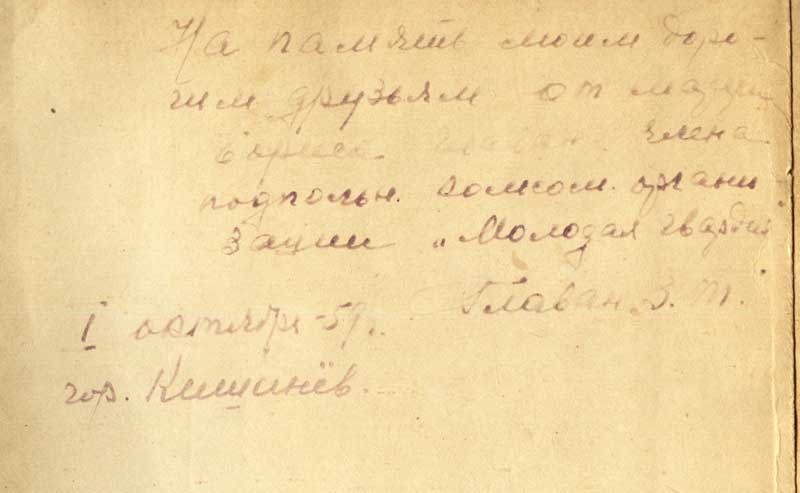 На память моим доро-
гим друзьям от матери
Бориса Главан члена
подпольн. комсом. органи
зации „Молодая гвардия
Главан З. Т.
I октября-59г.
гор. Кишинёв.